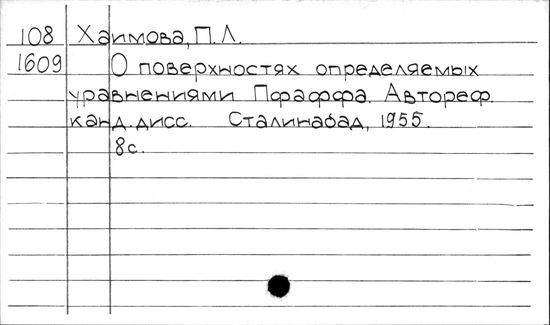 108 Хаимова, П.Л.
1609 О поверхностях определяемых
уравнениями Пфаффа. Автореф.
канд. дисс. Сталинабад, 1955.
8с.